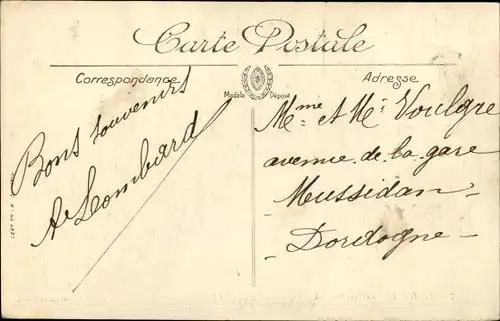 Carte Postale
Correspondance
Modèle Déposé
Adresse
Bons souvenirs
A. Lombard
Mme et Mr Voulgre
avenue de la gare
Mussidan
Dordogne